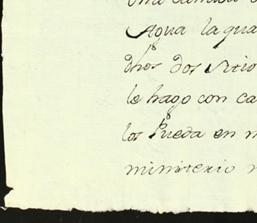 Agua la qua
dhos dos sitio
le hago con ca
los Pueda en m
ministerio